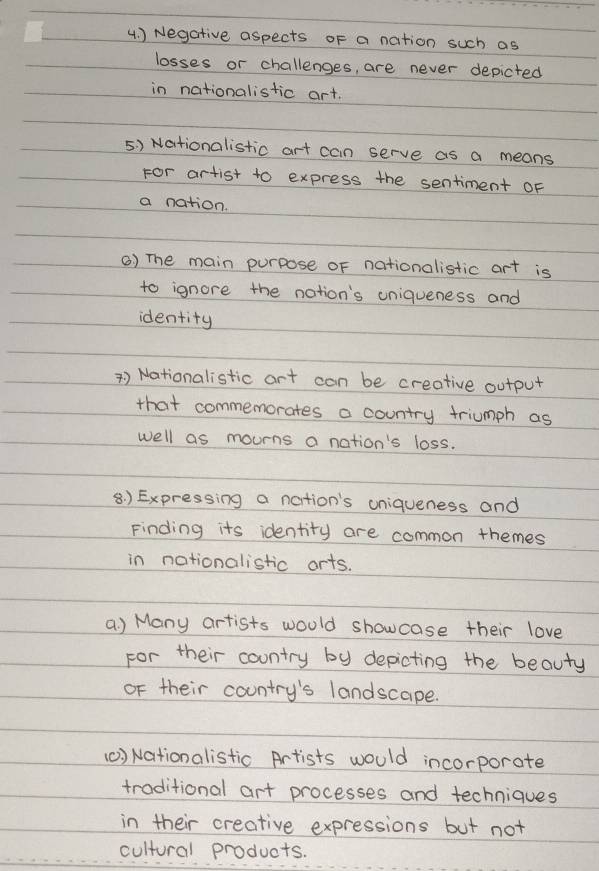 4.) Negative aspects of a nation such as
losses or challenges, are never depicted
in nationalistic art.
5.) Nationalistic art can serve as a means
for artist to express the sentiment of
a nation.
6) The main purpose of nationalistic art is
to ignore the nation's uniqueness and
identity
7.) Nationalistic art can be creative output
that commemorates a country triumph as
well as mourns a nation's loss.
8.) Expressing a nation's uniqueness and
Finding its identity are common themes
in nationalistic arts.
9.) Many artists would showcase their love
for their country by depicting the beauty
of their country's landscape.
10.) Nationalistic Artists would incorporate
traditional art processes and techniques
in their creative expressions but not
cultural products.